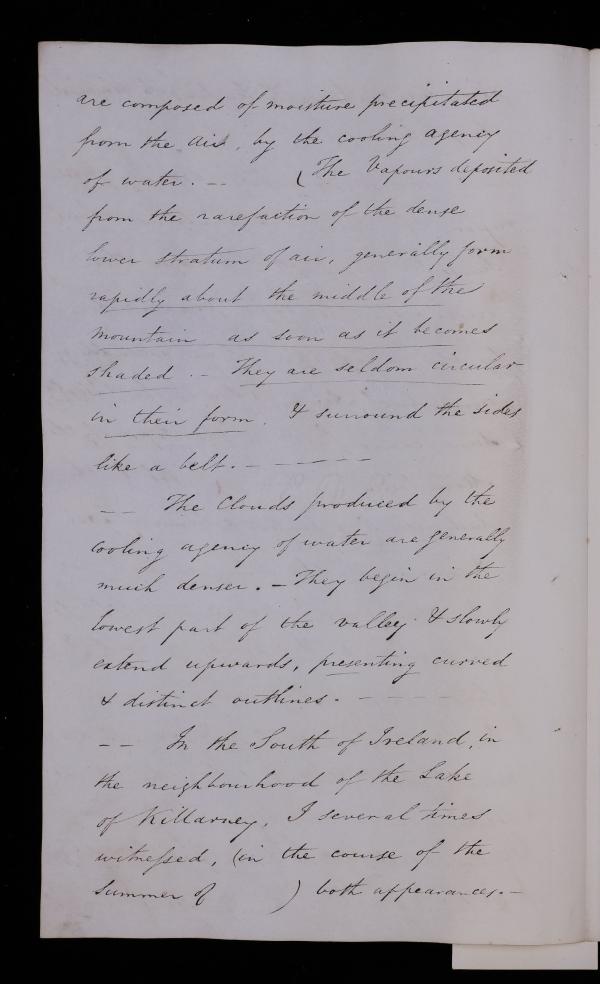 are composed of moisture precipitated
from the air, by the cooling agency
of water. -- (The Vapours deposited
from the rarefaction of the dense
lower stratum of air, generally form
rapidly about the middle of the
mountain as soon as it becomes
shaded. - They are seldom circular
in their form. & surround the sides
like a belt. - - - - -
-- The Clouds produced by the
cooling agency of water are generally
much denser. - They begin in the
lowest part of the valley & slowly
extend upwards, presenting curved
& distinct outlines. - - - -
-- In the South of Ireland, in
the neighbourhood of the Lake
of Killarney, I several times
witnessed, (in the course of the
Summer of ) both appearances. -